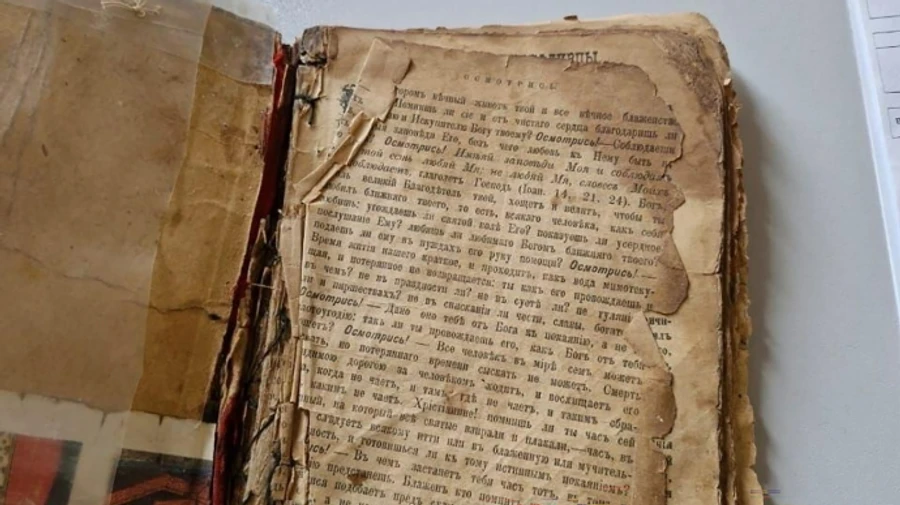 ОСМОТРИСЬ
вѣчный живетъ твой и все вѣчное блаженств
Помнишь ли сіе и отъ чистаго сердца благодаришь ли
и Искупителю Богу твоему? Осмотрись!— Соблюдаешь
заповѣди Его, безъ чего любовь къ Нему быть
Осмотрись! Имѣяй заповѣди Моя и соблюдаяй
той есть любяй Мя; не любяй Мя, словесъ Моихъ
глаголетъ Господь (Іоан. 14, 21. 24). Богъ
великій Благодѣтель твой, хощетъ и велитъ, чтобы ты
ближняго твоего, то есть, всякаго человѣка, какъ себя
любишь: угождаешь ли святой волѣ Его? показуешь ли усердное
послушаніе Ему? любишь ли любимаго Богомъ ближняго твоего?
подаешь ли ему въ нуждахъ его руку помощи? Осмотрись!—
Время житія нашего краткое, и проходитъ, какъ вода мимотеку-
щая, и потерянное не возвращается: ты какъ его провождаешь и
въ чемъ? не въ праздности ли? не въ суетѣ ли? не гуляні
ли и пиршествахъ? не въ снисканіи ли чести, славы, богат
Осмотрись! — Дано оно тебѣ отъ Бога къ покаянію, а не
такъ ли ты провождаешь его, какъ Богъ отъ тебя
Осмотрись! — Все человѣкъ въ мірѣ семъ можетъ
но потеряннаго времени сыскать не можетъ. Смерть
дорогою за человѣкомъ ходитъ, и восхищаетъ его
когда не чаетъ, и тамъ, гдѣ не чаетъ, и такимъ обра-
какимъ не чаетъ. Христіанине! помнишь ли ты часъ сей
на который всѣ святые взирали и плакали,—часъ, въ
слѣдуетъ всякому итти или въ блаженную или мучитель-
и готовишься ли къ тому истиннымъ покаяніемъ?
— Въ чемъ застанетъ тебя часъ тотъ, въ
представешь. Блаженъ кто помнитъ
подобаетъ предъ